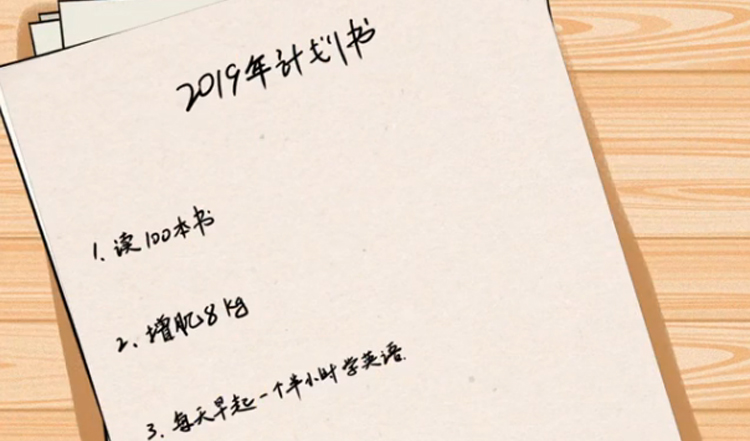 2019年计划书
1. 读100本书
2. 增肌8kg
3. 每天早起一个半小时学英语.